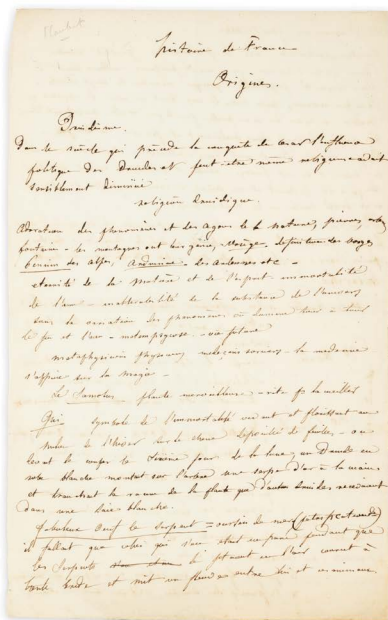 Flaubert
histoire de France
Origines.
Druidisme.
Dans le siècle qui précède la conquête de César l'influence
politique des Druides et peut-être même religieuse était
sensiblement diminuée
religion druidique.
Adoration des phénomènes et des agens de la nature, pierres,
fontaines - les montagnes ont leur génie, Vosège - des Vosges
Pennin des alpes, Arduinne - des Ardennes etc -
éternité de la matière et de l'esprit - immortalité
de l'âme - inaltérabilité de la substance de l'univers
sous la variation des phénomènes où domine tour à tour
le feu et l'eau - métempsycose - vie future
métaphysiciens physiciens médecins sorciers - la médecine
s'appuie sur la magie -
Le Samolus - plante merveilleuse -
Gui - symbole de l'immortalité vivant et fleurissant au
milieu de l'hiver sur le chêne dépouillé de feuilles - on
devait le couper le sixième jour de la lune, un Druide en
robe blanche montait sur l'arbre une serpe d'or à la main
et tranchait la racine de la plante que d'autres Druides recevaient
dans une saie blanche.
fabuleux oeuf de serpent = oursin de mer (
il fallait que celui qui s'en était emparé pendant que
les serpents le jetaient en l'air courut à
toute bride et mit un fleuve entre lui et